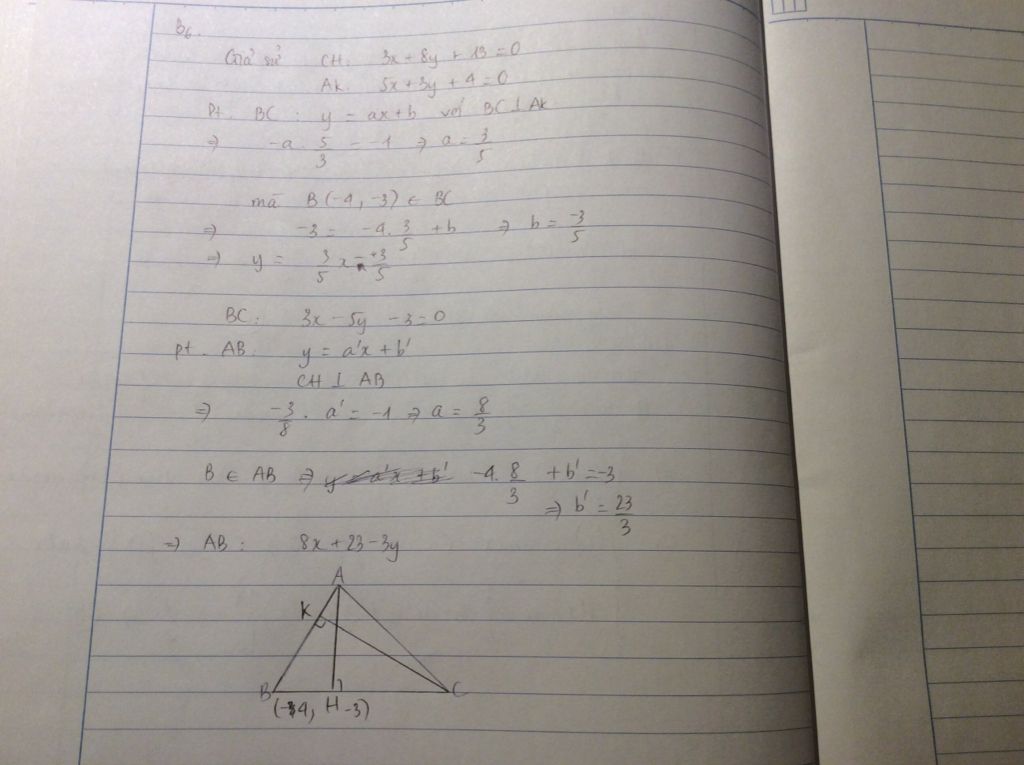 B6.
Giả sử CH: 3x + 8y + 13 = 0
AK: 5x + 3y + 4 = 0
Pt. BC: y = ax + b với BC ⊥ AK
⇒ -a. 5/3 = -1 ⇒ a = 3/5
mà B(-4, -3) ∈ BC
⇒ -3 = -4. 3/5 + b ⇒ b = -3/5
⇒ y = 3/5 x
BC: 3x - 5y - 3 = 0
pt. AB: y = a'x + b'
CH ⊥ AB
⇒ -3/8 . a' = -1 ⇒ a = 8/3
B ∈ AB ⇒ -4. 8/3 + b' = -3
⇒ b' = 23/3
⇒ AB: 8x + 23 - 3y
A
K
B H C
(-4, -3)